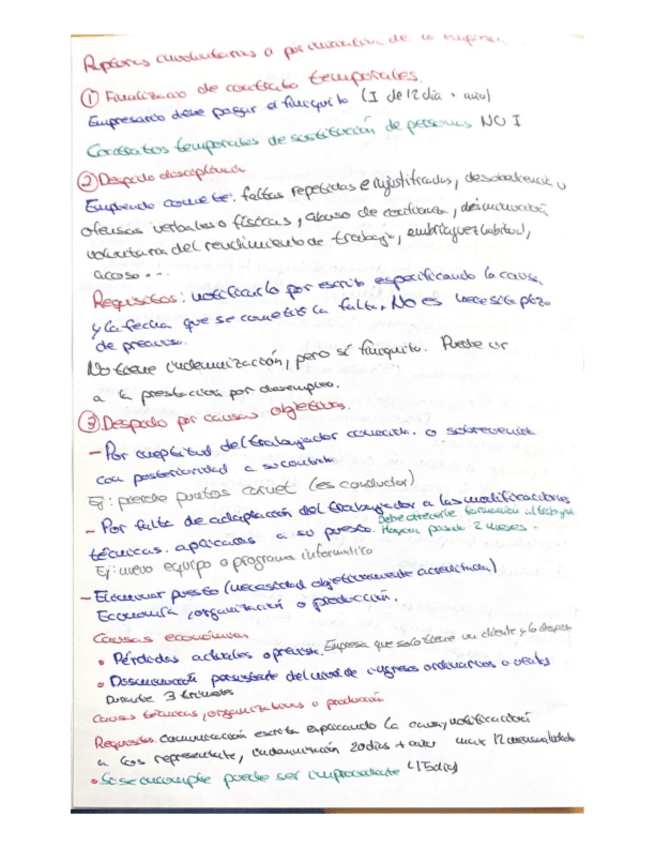 Rupturas involuntarias o por iniciativa de la empresa
① Finalización de contrato temporales.
Empresario debe pagar el finiquito (I de 12 día × año)
Contratos temporales de sustitución de personas NO I
② Despido disciplinario
Empleado comete: faltas repetidas e injustificadas, desobediencia u
ofensas verbales o físicas, abuso de confianza, disminución
voluntaria del rendimiento de trabajo, embriaguez habitual,
acoso...
Requisitos: notificarlo por escrito especificando la causa,
y la fecha que se cometió la falta. No es necesite plazo
de preaviso.
No tiene indemnización, pero sí finiquito. Puede ir
a la prestación por desempleo.
③ Despido por causas objetivas.
- Por ineptitud del trabajador conocida. o sobrevenida
con posterioridad a su contrato
Ej: pierde puntos carnet (es conductor)
- Por falta de adaptación del trabajador a las modificaciones
técnicas. aplicadas a su puesto. Debe ofrecerle formación al trabajador
Hayan pasado 2 meses.
Ej: nuevo equipo o programa informático
- Eliminar puesto (necesidad objetivamente acreditada)
Economía, organización o producción.
Causas económicas
• Pérdidas actuales o previstas. Empresa que solo tiene un cliente y lo despide
• Disminución persistente del nivel de ingresos ordinarios o ventas
Durante 3 trimestres
Causas técnicas, organizativas o producción
Requisitos. Comunicación escrita explicando la causa, notificación
a los representante, indemnización 20 días × año max 12 mensualidades
• Si se incumple puede ser improcedente (15 día)